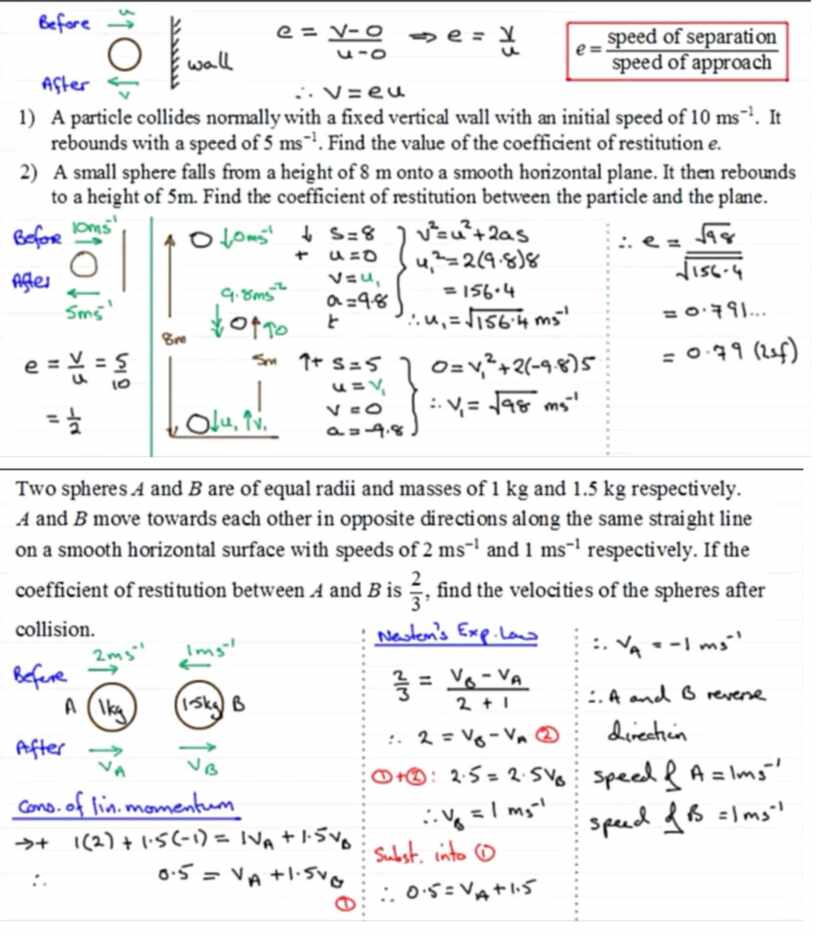 Before u
After v
wall
e = v-0 / u-0 ⇒ e = v/u
∴ v = eu
e = speed of separation / speed of approach
1) A particle collides normally with a fixed vertical wall with an initial speed of 10 ms⁻¹. It
rebounds with a speed of 5 ms⁻¹. Find the value of the coefficient of restitution e.
2) A small sphere falls from a height of 8 m onto a smooth horizontal plane. It then rebounds
to a height of 5m. Find the coefficient of restitution between the particle and the plane.
Before 10ms⁻¹
After
5ms⁻¹
e = v/u = 5/10
= 1/2
↓0ms⁻¹
9.8ms⁻²
↑0
8m
5m
↓u₁ ↑v₁
↓ s=8
+ u=0
v=u₁
a=9.8
t
v²=u²+2as
u₁²=2(9.8)8
= 156.4
∴ u₁=√156.4 ms⁻¹
↑+ s=5
u=v₁
v=0
a=-9.8
0=v₁²+2(-9.8)5
∴ v₁ = √98 ms⁻¹
∴ e = √98 / √156.4
= 0.791...
= 0.79 (2sf)
Two spheres A and B are of equal radii and masses of 1 kg and 1.5 kg respectively.
A and B move towards each other in opposite directions along the same straight line
on a smooth horizontal surface with speeds of 2 ms⁻¹ and 1 ms⁻¹ respectively. If the
coefficient of restitution between A and B is 2/3, find the velocities of the spheres after
collision.
2ms⁻¹ 1ms⁻¹
Before
A 1kg 1.5kg B
After
V_A V_B
Cons. of lin. momentum
→+ 1(2) + 1.5(-1) = 1V_A + 1.5V_B
∴ 0.5 = V_A + 1.5V_B ①
Newton's Exp. Law
2/3 = V_B - V_A / 2 + 1
∴ 2 = V_B - V_A ②
①+②: 2.5 = 2.5V_B
∴ V_B = 1 ms⁻¹
Subst. into ①
∴ 0.5 = V_A + 1.5
∴ V_A = -1 ms⁻¹
∴ A and B reverse
direction
speed of A = 1ms⁻¹
speed of B = 1ms⁻¹